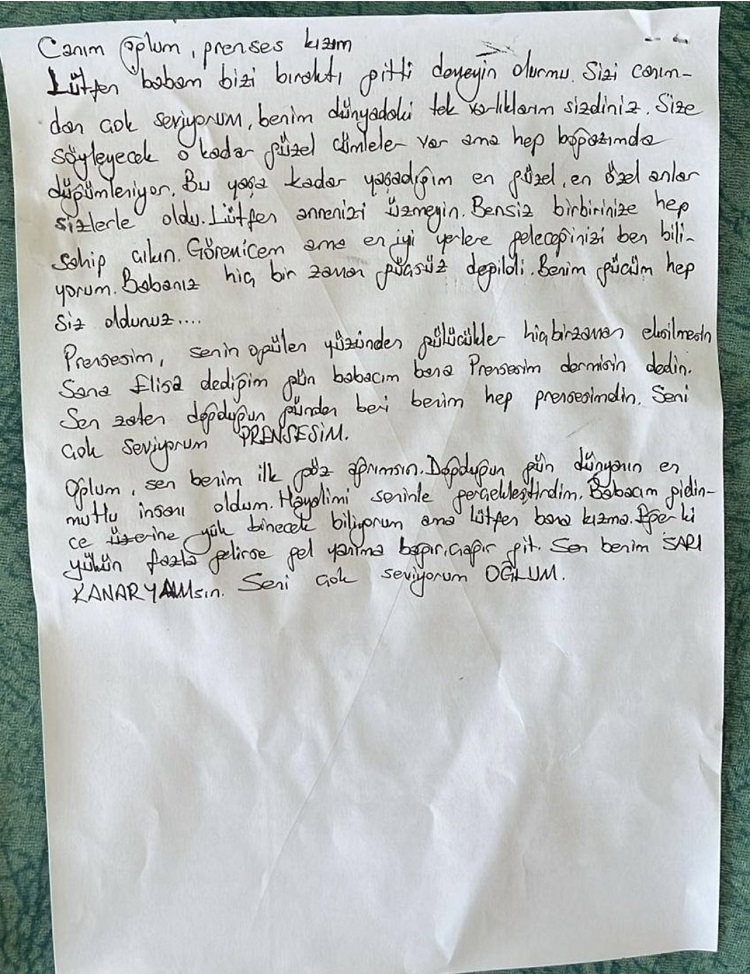 Canım oğlum, prenses kızım
Lütfen babam bizi bıraktı gitti demeyin olurmu. Sizi canım-
dan çok seviyorum, benim dünyadaki tek varlıklarım sizdiniz. Size
söyleyecek o kadar güzel cümleler var ama hep boğazımda
düğümleniyor. Bu yaşa kadar yaşadığım en güzel, en özel anlar
sizlerle oldu. Lütfen annenizi üzmeyin. Bensiz birbirinize hep
sahip çıkın. Görenicem ama en iyi yerlere geleceğinizi ben bili-
yorum. Babanız hiç bir zaman güçsüz değildi. Benim gücüm hep
siz oldunuz....
Prensesim, senin o gülen yüzünden gülücükler hiçbirzaman eksilmesin
Sana Elisa dediğim gün babacım bana Prensesim dermisin dedin.
Sen zaten doğduğun günden beri benim hep prensesimdin. Seni
çok seviyorum PRENSESİM.
Oğlum, sen benim ilk göz ağrımsın. Doğduğun gün dünyanın en
mutlu insanı oldum. Hayalimi seninle gerçekleştirdim. Babacım gidin-
ce üzerine yük binecek biliyorum ama lütfen bana kızma. Eğer ki
yükün fazla gelirse gel yanıma bağır, çağır git. Sen benim SARI
KANARYAMsın. Seni çok seviyorum OĞLUM.